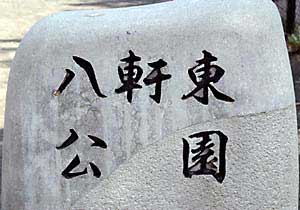 八軒東
公園